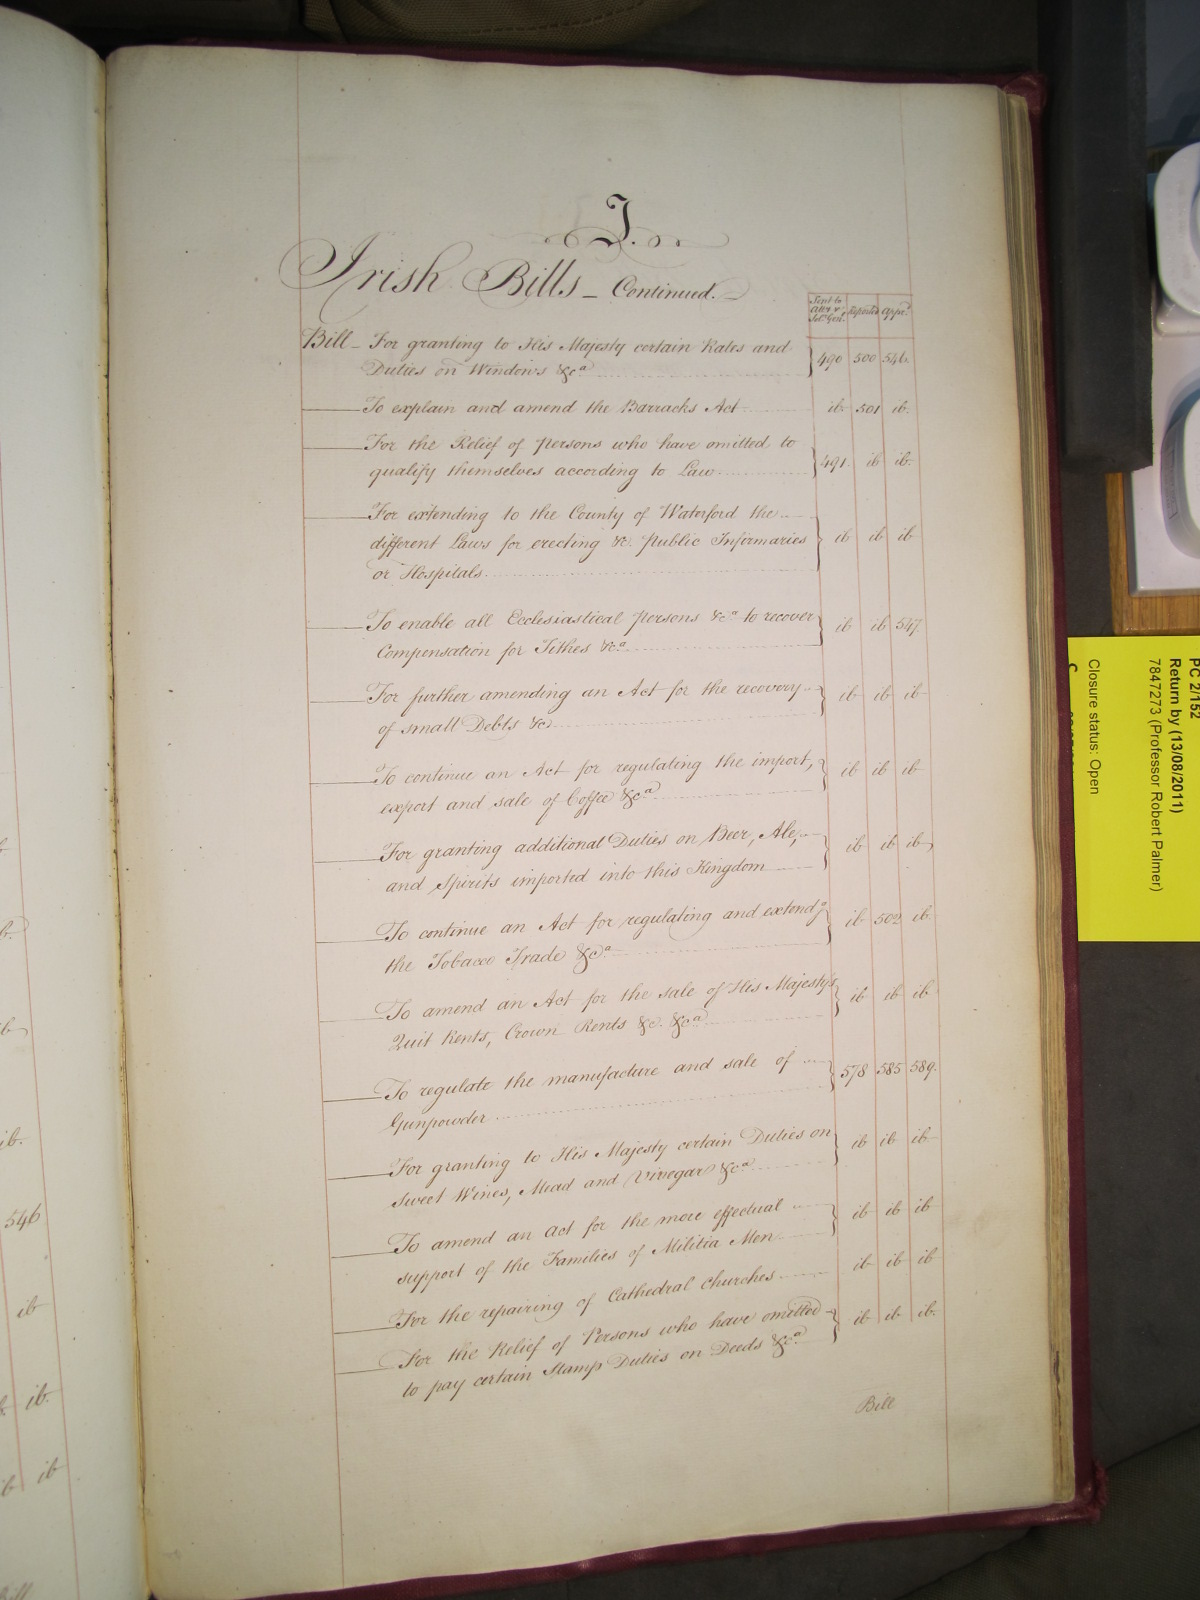 I.
Irish Bills – Continued. –
Sent to Atty & Solr. Genl. Reported Appd.
Bill – For granting to His Majesty certain Rates and
Duties on Windows &ca 490 500 546.
To explain and amend the Barracks Act ib 501 ib.
For the Relief of Persons who have omitted to
qualify themselves according to Law 491. ib ib.
For extending to the County of Waterford the
different Laws for erecting &c. Public Infirmaries
or Hospitals ib ib ib
To enable all Ecclesiastical Persons &ca to recover
Compensation for Tithes &ca ib ib 547.
For further amending an Act for the recovery
of small Debts &c ib ib ib
To continue an Act for regulating the import,
export and sale of Coffee &ca ib ib ib
For granting additional Duties on Beer, Ale,
and Spirits imported into this Kingdom ib ib ib
To continue an Act for regulating and extendg.
the Tobacco Trade &ca ib 502 ib
To amend an Act for the sale of His Majesty's
Quit Rents, Crown Rents &c. &ca ib ib ib
To regulate the manufacture and sale of
Gunpowder 578 585 589.
For granting to His Majesty certain Duties on
Sweet Wines, Mead and Vinegar &ca ib ib ib
To amend an Act for the more effectual
support of the Families of Militia Men ib ib ib
For the repairing of Cathedral Churches ib ib ib
For the Relief of Persons who have omitted
to pay certain Stamp Duties on Deeds &ca ib ib ib.
Bill
546
ib
ib.
ib ib
PC 2/152
Return by (13/08/2011)
7847273 (Professor Robert Palmer)
Closure status: Open